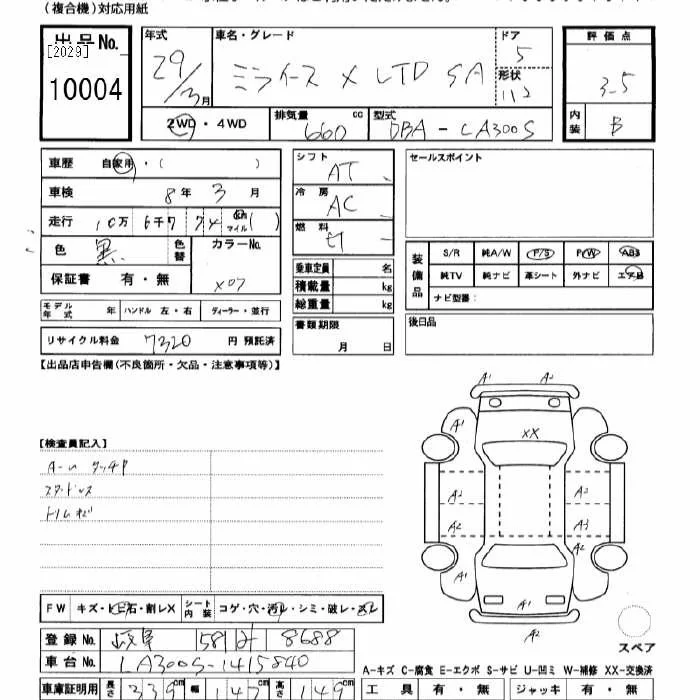 (複合機)対応用紙
出品No.
[2029]
10004
年式
29/3月
車名・グレード
ミライース X LTD SA
ドア
5
形状
評価点
3.5
内装
B
2WD・4WD
排気量
660cc
型式
DBA-LA300S
車歴 自家用・( )
車検 8年 3月
走行 10万 6千7 74 km マイル( )
色 黒
色替
カラーNo.
X07
保証書 有・無
モデル年式 年
ハンドル 左・右
ディーラー・並行
リサイクル料金 7320 円 預託済
シフト
AT
冷房
AC
燃料
乗車定員 名
積載量 kg
総重量 kg
書類期限
月 日
セールスポイント
装備品
S/R 純A/W P/S P/W ABS
純TV 純ナビ 革シート 外ナビ エアB
ナビ型番:
後日品
【出品店申告欄(不良箇所・欠品・注意事項等)】
【検査員記入】
A1 A2
A1
XX
A2 A2
A2 A3
A1 A1
A2
スペア
FW キズ・トビ石・割レX
シート内装
コゲ・穴・汚レ・シミ・破レ・スレ
登録No. 岐阜 581 8688
車台No. LA300S-1415840
車庫証明用 長さ 339cm 幅 147cm 高さ 149cm
A-キズ C-腐食 E-エクボ S-サビ U-凹ミ W-補修 XX-交換済
工具 有・無 ジャッキ 有・無